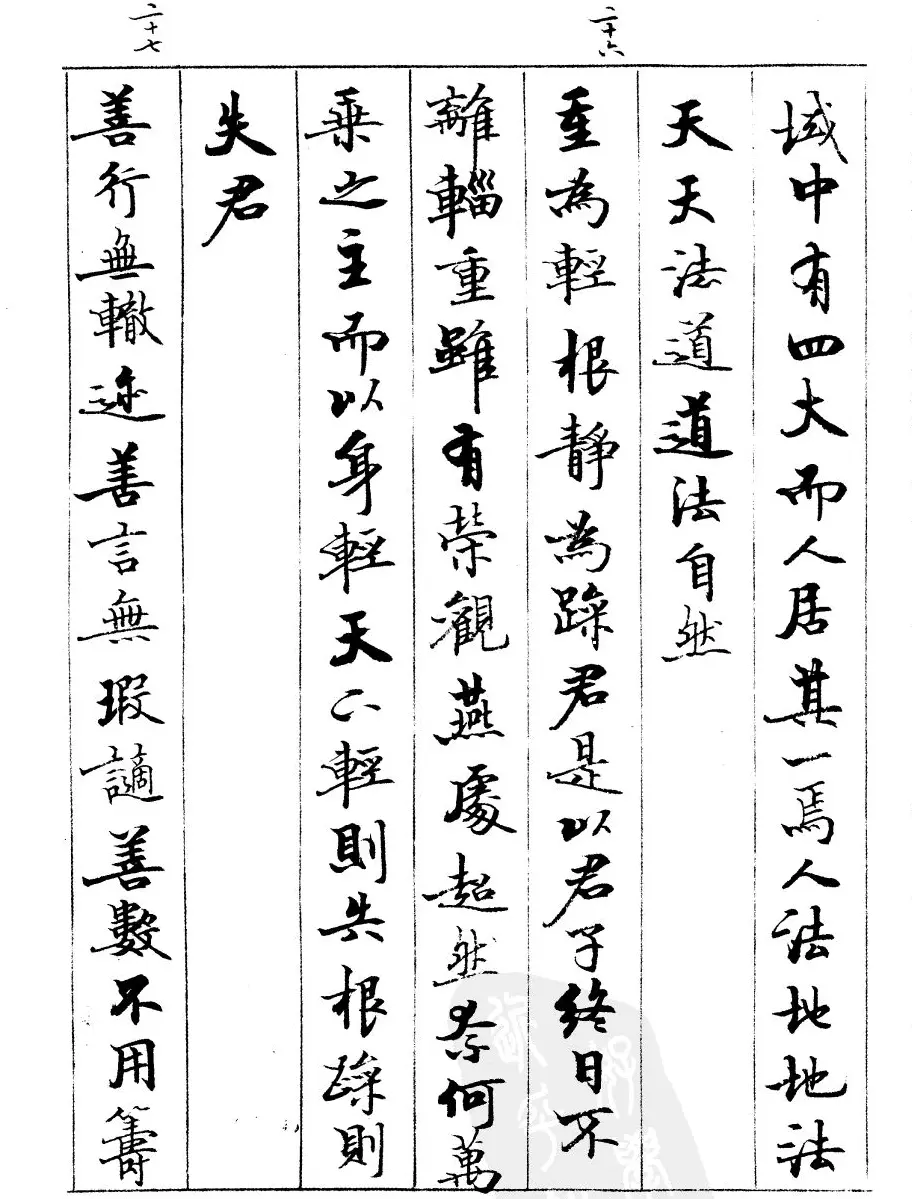 域中有四大而人居其一焉人法地地法
天天法道道法自然
二十六
重為輕根静為躁君是以君子終日不
離輜重雖有榮觀燕處超然奈何萬
乗之主而以身輕天下輕則失根躁則
失君
二十七
善行無轍迹善言無瑕讁善數不用籌